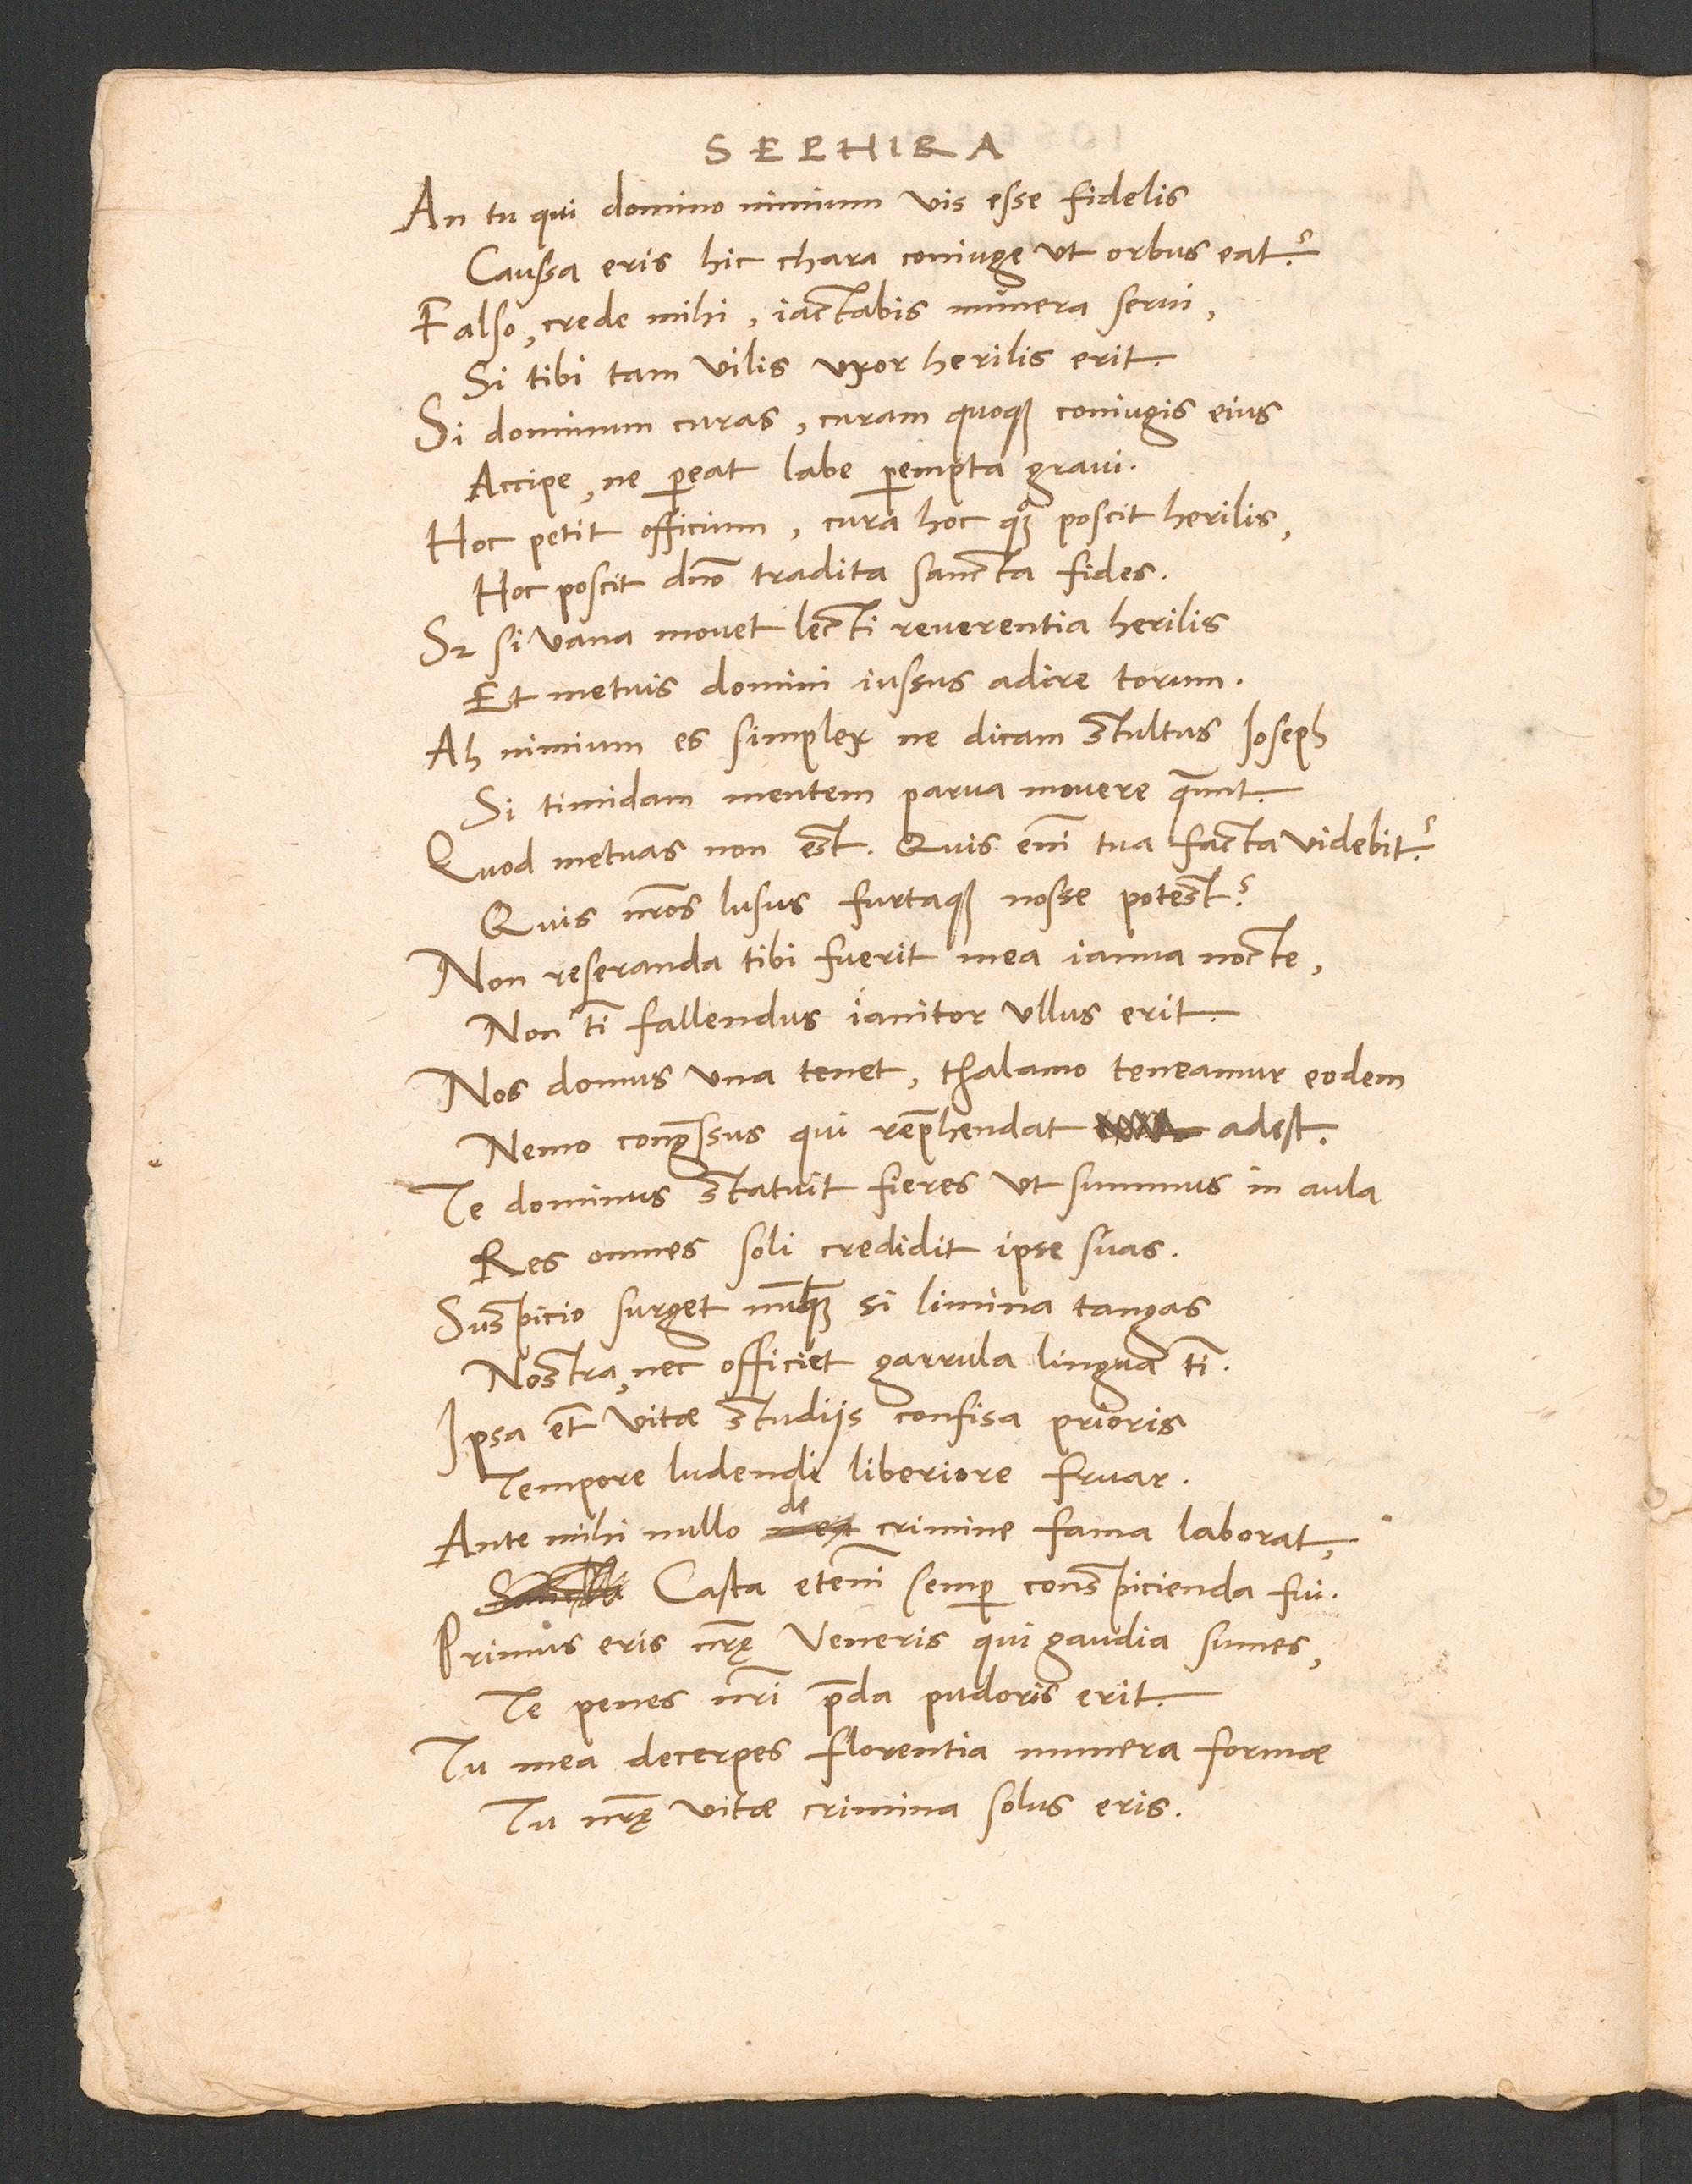 SEPHIRA
An tu qui domino nimium vis esse fidelis
Caussa eris hic chara coniuge ut orbus eat?
Falso, crede mihi, iactabis munera serui,
Si tibi tam vilis uxor herilis erit.
Si dominum curas, curam quoqꝫ coniugis eius
Accipe, ne ꝑeat labe ꝑempta graui.
Hoc petit officium, cura hoc qꝫ poscit herilis,
Hoc poscit dno̅ tradita sancta fides.
Sꝫ si vana mouet lecti reuerentia herilis
Et metuis domini iussus adire torum.
Ah nimium es simplex ne dicam stultus Joseph
Si timidam mentem parua mouere q̅unt.
Quod metuas non est. Quis eni̅ tua facta videbit?
Quis nr̅os lusus furtaqꝫ nosse potest?
Non reseranda tibi fuerit mea ianua nocte,
Non ti̅ fallendus ianitor ullus erit.
Nos domus una tenet, thalamo teneamur eodem
Nemo congssus qui rep̅hendat adest.
Te dominus statuit fieres ut summus in aula
Res omnes soli credidit ipse suas.
Suspicio surget nu̅qꝫ si limina tangas
Nostra, nec officiet garrula lingua ti̅.
Ipsa et̅ vitæ studijs confisa prioris
Tempore ludendi liberiore fruar.
Ante mihi nullo mea de crimine fama laborat,
Casta eteni̅ semꝑ conspicienda fui.
Primus eris nr̅ę Veneris qui gaudia sumes,
Te penes nr̅i p̅da pudoris erit.
Tu mea decerpes florentia munera formæ
Tu nr̅ę vitæ crimina solus eris.